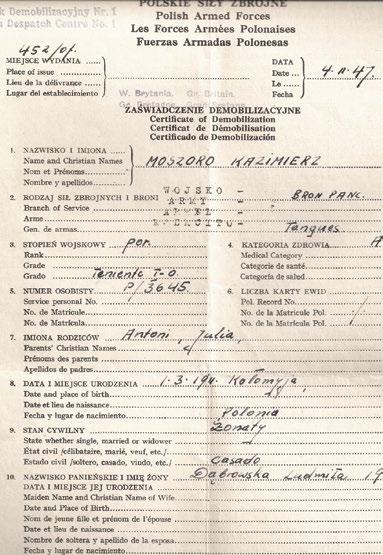 POLSKIE SIŁY ZBROJNE
Polish Armed Forces
Les Forces Armées Polonaises
Fuerzas Armadas Polonesas
k Demobilizacyjny Nr. 1
Despatch Centre No. 1
452/of.
MIEJSCE WYDANIA
Place of issue
Lieu de la délivrance
Lugar del establecimiento
W. Brytania. Gr. Britain.
DATA
Date
Le
Fecha
4.11.47.
ZAŚWIADCZENIE DEMOBILIZACYJNE
Certificate of Demobilization
Certificat de Démobilisation
Certificado de Demobilización
1. NAZWISKO I IMIONA
Name and Christian Names
Nom et Prénoms
Nombre y apellidos
MOSZORO KAZIMIERZ
2. RODZAJ SIŁ ZBROJNYCH I BRONI
Branch of Service
Arme
Gen. de armas
WOJSKO -
ARMY -
EJERCITO -
BROŃ PANC.
Tanques
3. STOPIEŃ WOJSKOWY por.
Rank
Grade
Grado Teniente T-o
4. KATEGORIA ZDROWIA A
Medical Category
Categorie de santé
Categoría de salud
5. NUMER OSOBISTY P/3645
Service personal No.
No. de Matricule
No. de Matrícula
6. LICZBA KARTY EWID
Pol. Record No.
No. de la Matricule Pol.
No. de la Matrícula Pol.
7. IMIONA RODZICÓW Antoni, Julia
Parents' Christian Names
Prénoms des parents
Apellidos de padres
8. DATA I MIEJSCE URODZENIA 1.3.1911. Kołomyja
Date and place of birth
Date et lieu de naissance
Fecha y lugar de nacimiento Polonia
9. STAN CYWILNY żonaty
State whether single, married or widower
État civil /célibataire, marié, veuf, etc./
Estado civil /soltero, casado, viudo, etc./ casado
10. NAZWISKO PANIEŃSKIE I IMIĘ ŻONY Dąbrowska Ludmiła 19
DATA I MIEJSCE JEJ URODZENIA
Maiden Name and Christian Name of Wife
Date and Place of Birth
Nom de jeune fille et prénom de l'épouse
Date et lieu de naissance
Nombre de soltera y apellido de la esposa
Fecha y lugar de nacimiento